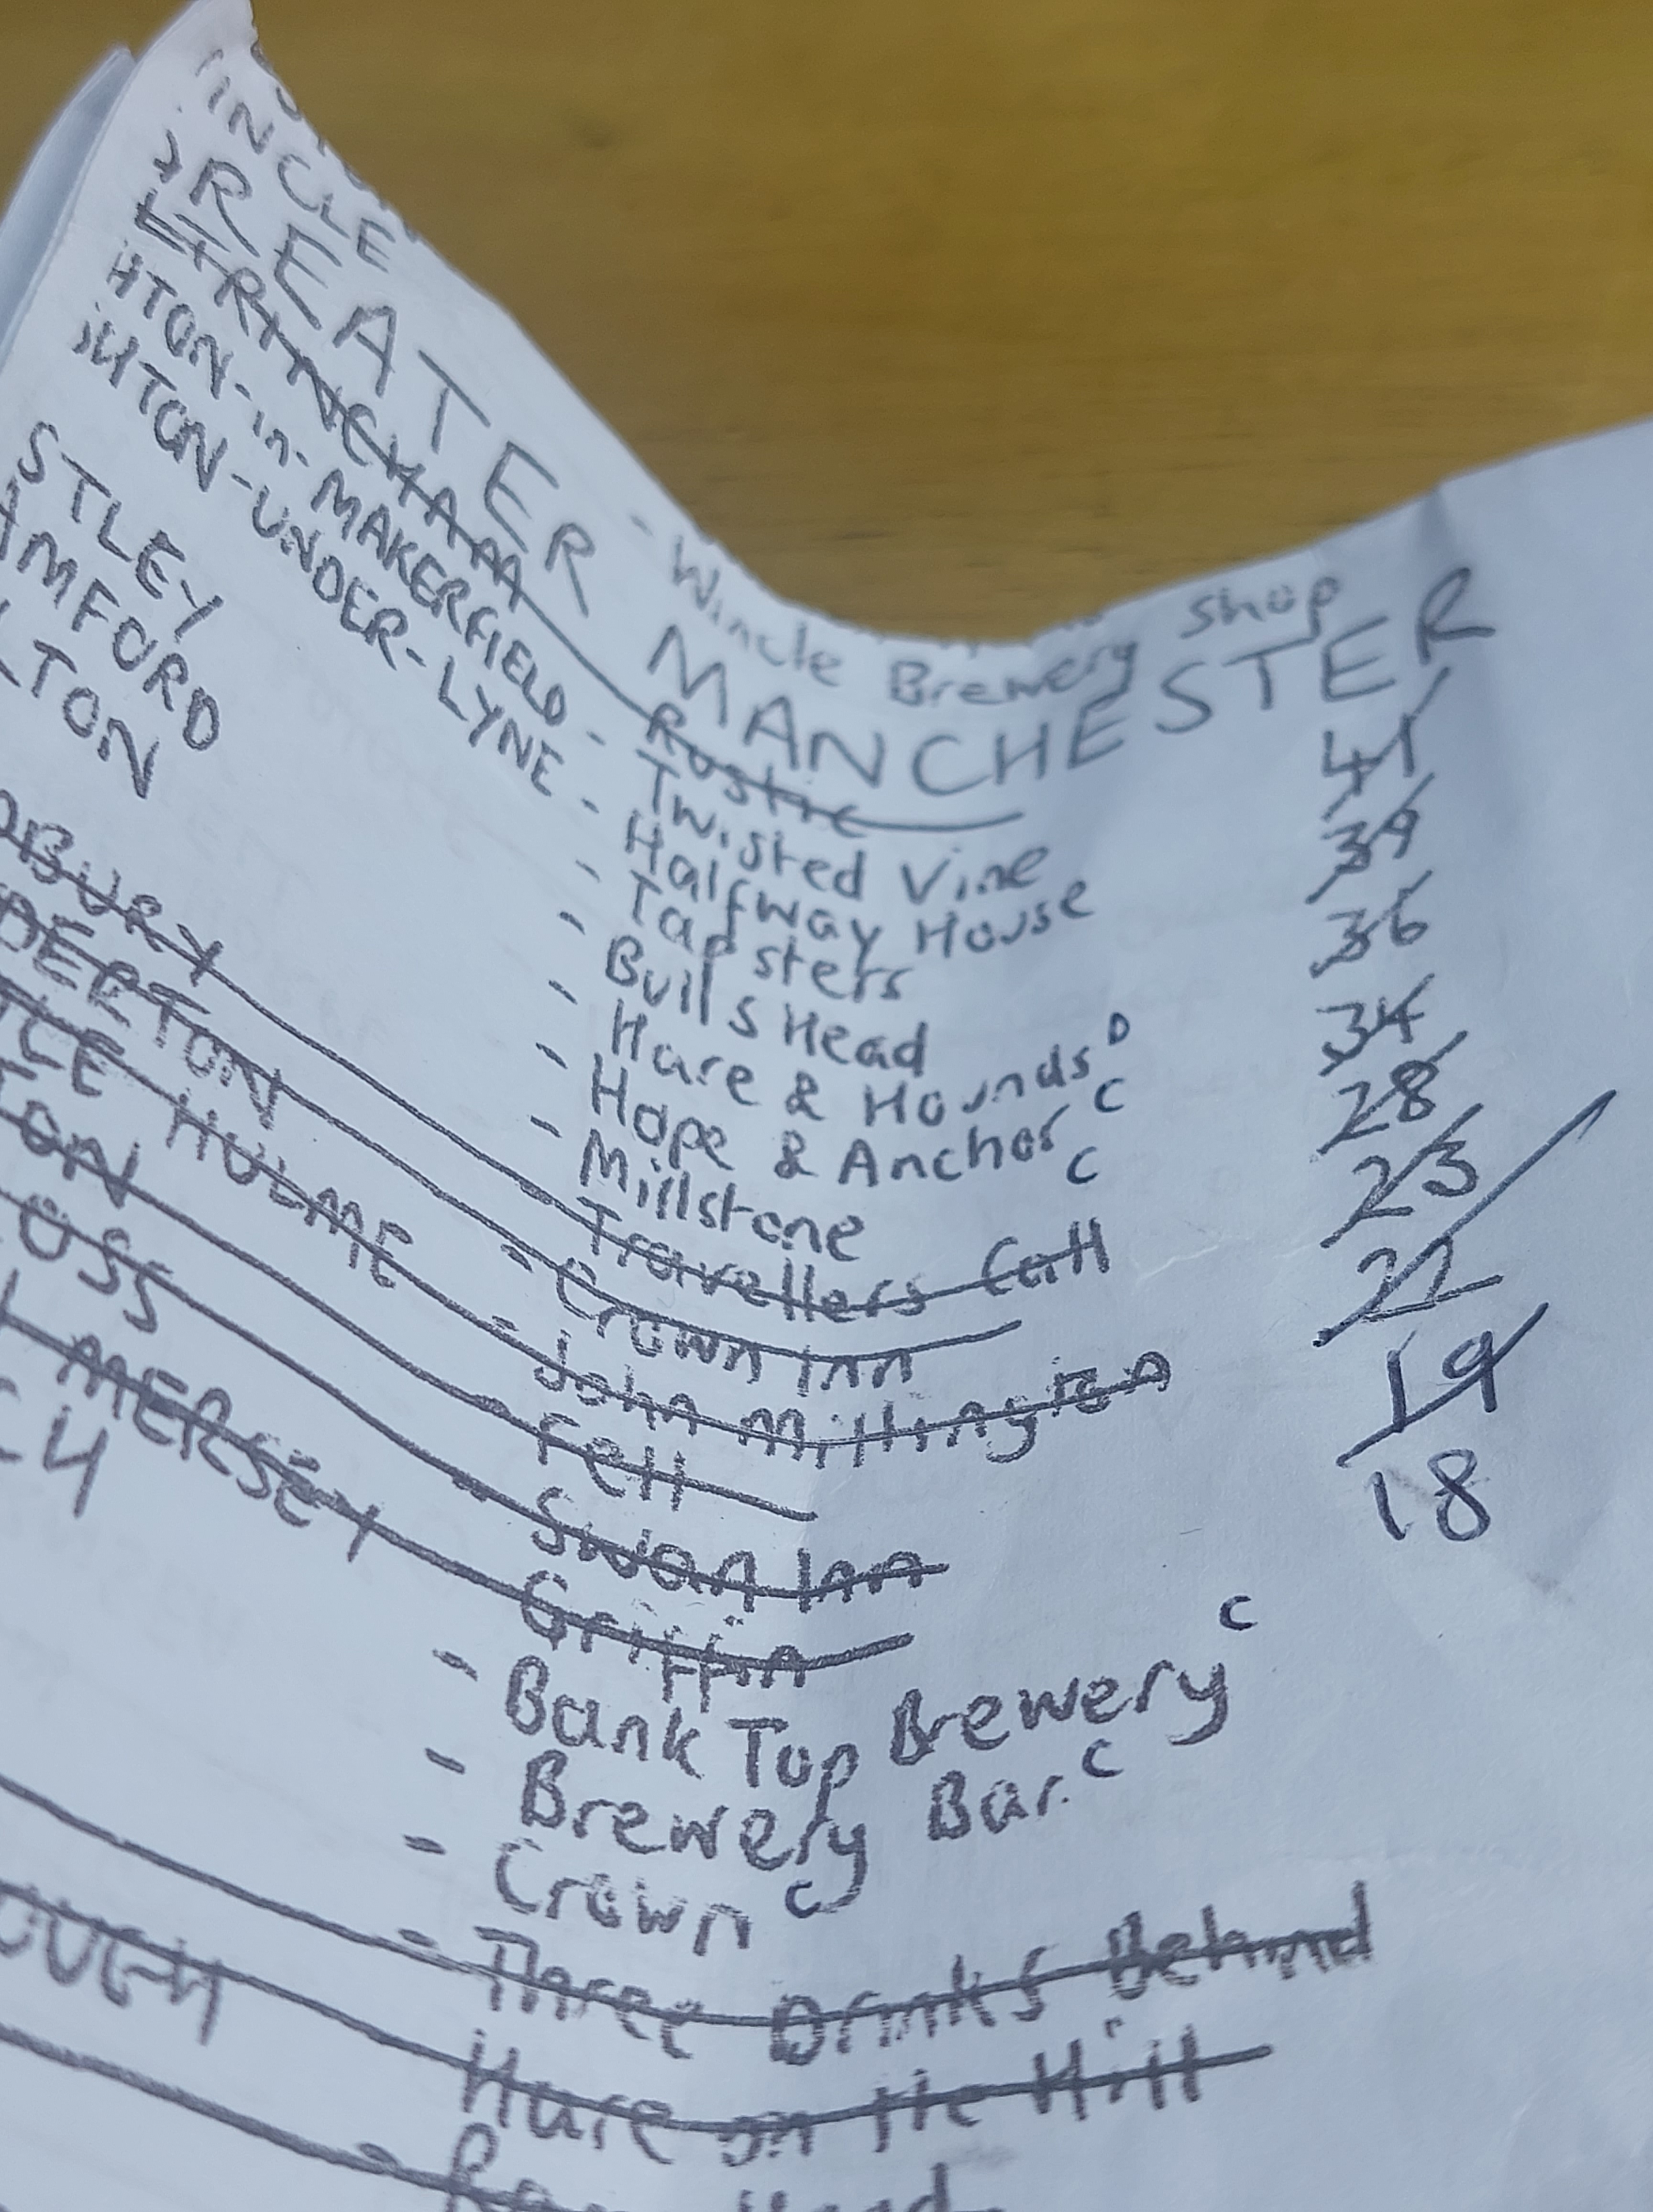 INCLE - Wincle Brewery Shop
REATER MANCHESTER
LTRINCHAM - Rustic 41
HTON-in-MAKERFIELD - Twisted Vine 39
HTON-UNDER-LYNE - Halfway House 36
- Tapsters 34
STLEY - Bulls Head 28
MFORD - Hare & Hounds D 23
LTON - Hope & Anchor C 21
- Millstone C 19
Travellers Call 18
DBURY - Crown Inn
DERTON - John Millington
LE HULME - Fell
ON - Swan Inn
OSS - Griffin
MERSEY
CH - Bank Top Brewery C
- Brewery Bar C
- Crown C
- Three Drinks Behind
OUGH - Hare on the Hill